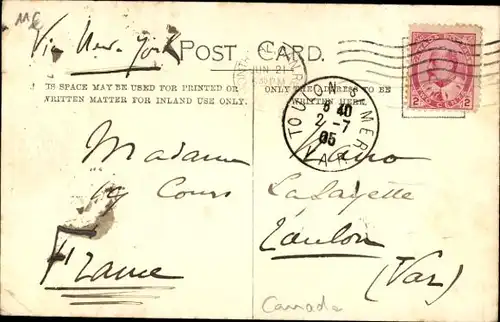 Via New York
POST CARD.
JUN 21
THIS SPACE MAY BE USED FOR PRINTED OR
WRITTEN MATTER FOR INLAND USE ONLY.
ONLY THE ADDRESS TO BE
WRITTEN HERE.
TOULON S MER
8 40
2 - 7
05
VAR
2 2
Madame
Cours Lafayette
Toulon
(Var)
France
Canada